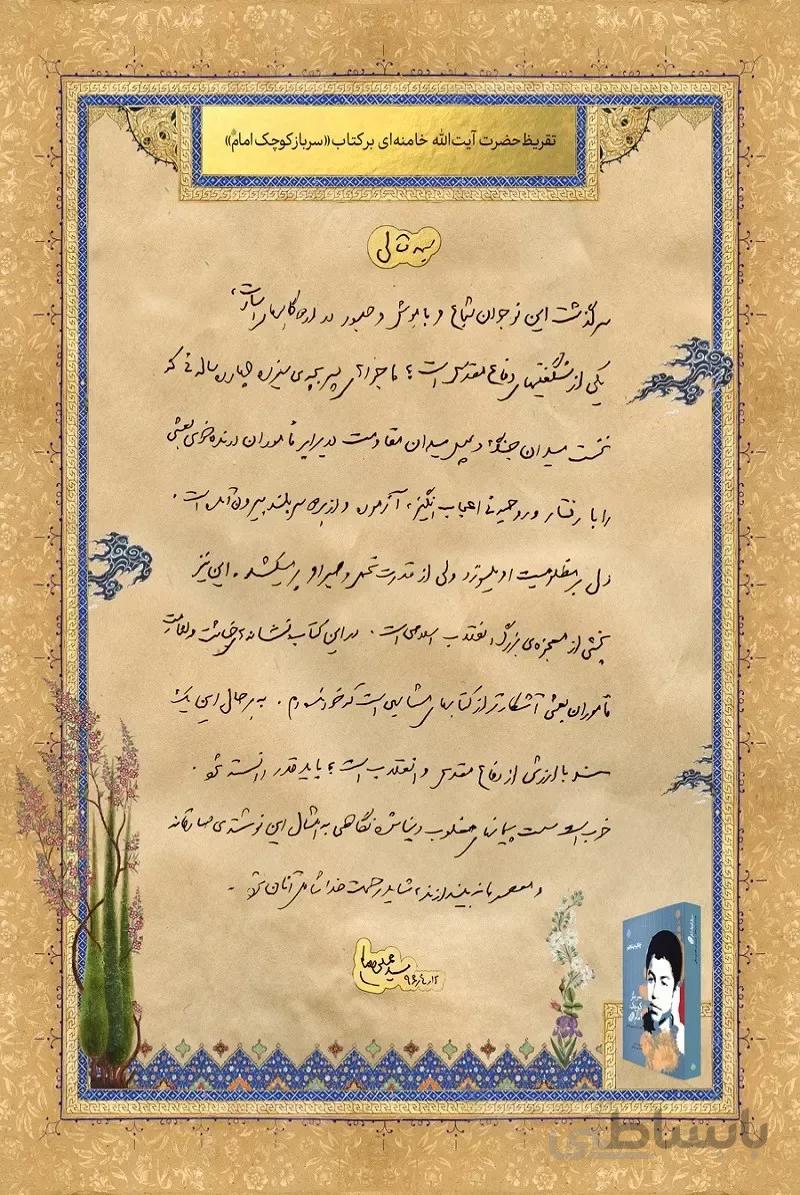 تقریظ حضرت آیت‌الله خامنه‌ای بر کتاب «سرباز کوچک امام»
بسمه تعالی
سرگذشت این نوجوان شجاع و باهوش و صبور در اردوگاههای اسارت،
یکی از شگفتیهای دفاع مقدس است؛ ماجراهای پسربچه‌ی سیزده چهارده ساله‌ئی که
نخست میدان جنگ و سپس میدان مقاومت در برابر مأموران درنده‌خوی بعثی
را با رفتار و روحیه‌ئی اعجاب‌انگیز، آزموده و از هر دو سربلند بیرون آمده است.
دل بر مظلومیت او میسوزد ولی از قدرت و تحمل و صبر او پر میکشد. این نیز
بخشی از معجزه‌ی بزرگ انقلاب اسلامی است. در این کتاب نشانه‌های خباثت و لئامت
مأموران بعثی آشکارتر از کتابهای مشابهی است که خوانده‌ام. به هر حال این یک
سند باارزش از دفاع مقدس و انقلاب است؛ باید قدر دانسته شود.
خوب است سست پیمانهای مغلوب دنیا شده نگاهی به امثال این نوشته‌ی صادقانه
و معصومانه بیندازند، شاید رحمت خدا شامل آنان شود.
سید علی خامنه‌ای
سرباز کوچک امام
باساطچی